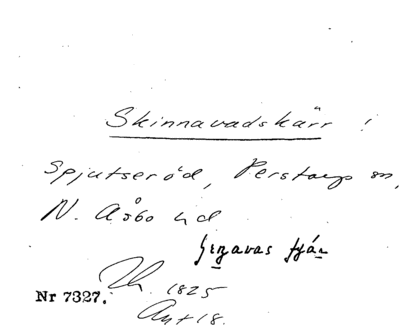 Skinnavadskärr!
Spjutseröd, Perstorps sn,
N. Åsbo hd
Nr 7327. 1825
Akt 18.